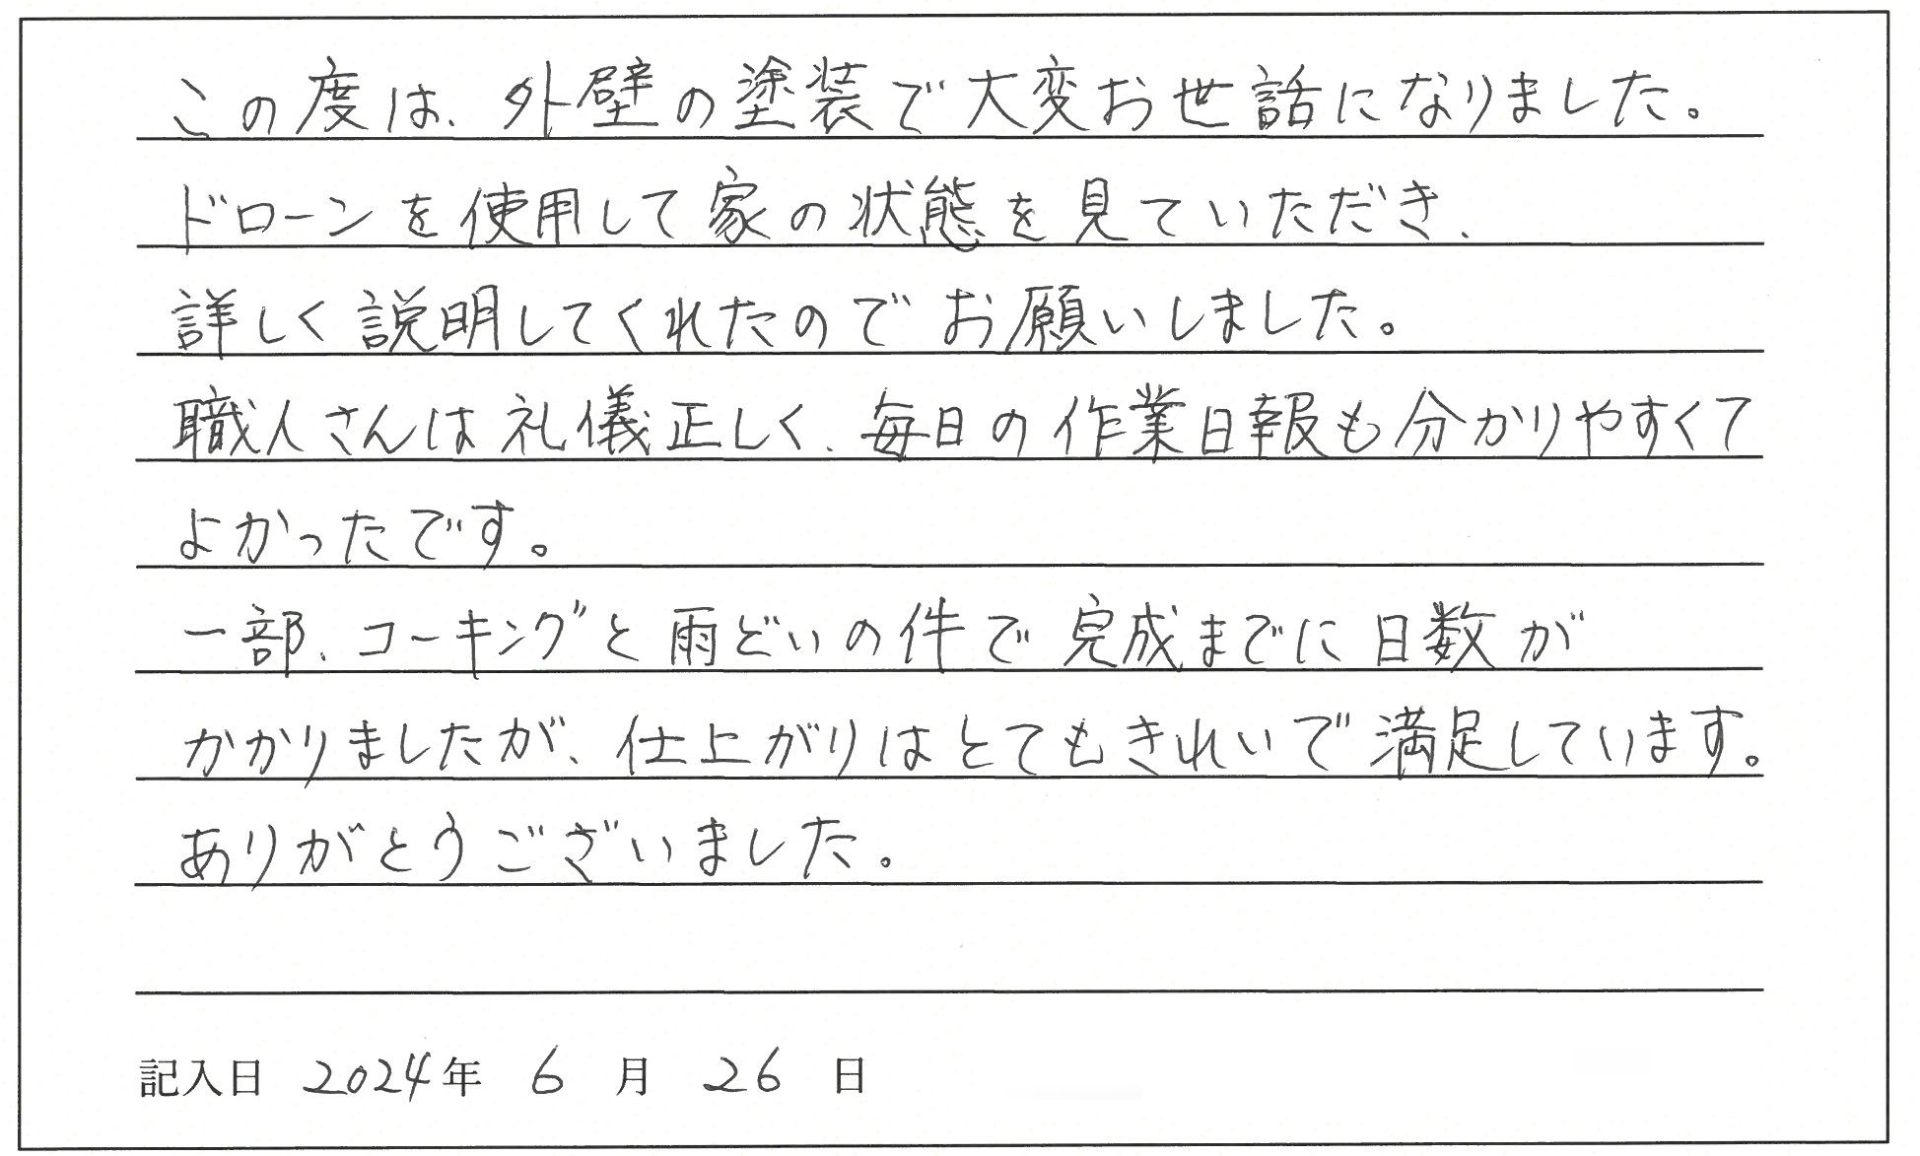 この度は、外壁の塗装で大変お世話になりました。
ドローンを使用して家の状態を見ていただき、
詳しく説明してくれたのでお願いしました。
職人さんは礼儀正しく、毎日の作業日報も分かりやすくて
よかったです。
一部、コーキングと雨どいの件で完成までに日数が
かかりましたが、仕上がりはとてもきれいで満足しています。
ありがとうございました。
記入日 2024年 6 月 26 日